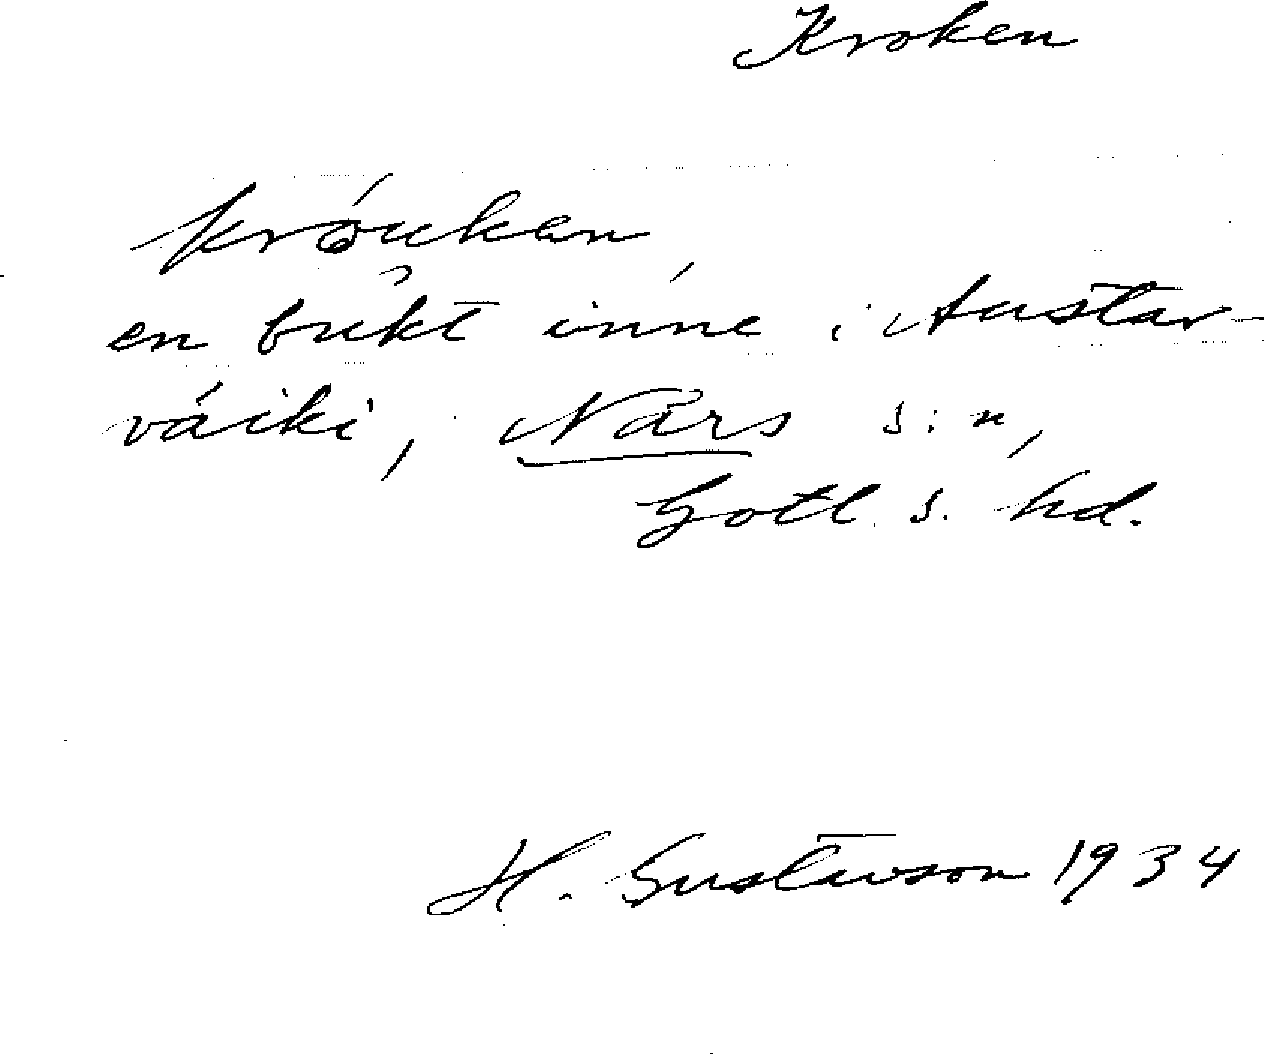 Kroken
króukan
en bukt inne i Austar-
váiki, När s:n,
Gotl. s. hd.
H. Gustavson 1934